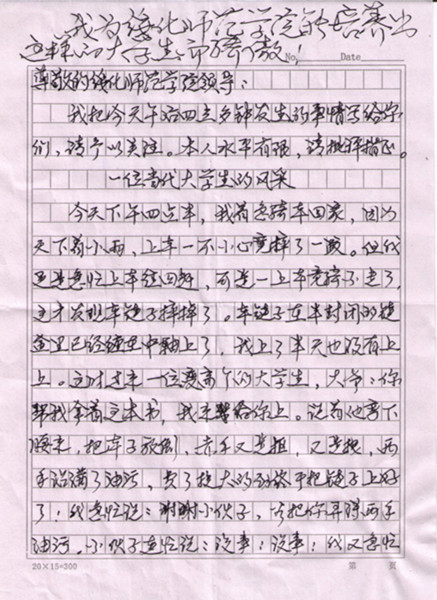 我为绥化师范学院能培养出
这样的大学生而骄傲！
No. Date
尊敬的绥化师范学院领导：
我把今天午后四点多钟发生的事情写给你
们，请予以关注。本人水平有限，请批评指正。
一位当代大学生的风采
今天下午四点半，我着急骑车回家，因为
天下着小雨，上车一不小心竟摔了一跤。但我
还是急忙上车往回赶，可是一上车竟骑不走了，
这才发现车链子摔掉了。车链子在半封闭的链
盒里已经缠在中轴上了，我上了半天也没有上
上。这时过来一位要高个的大学生，大爷：你
帮我拿着这本书，我来帮你上。说着他弯下
腰来，把车子放倒，赤手又是抠，又是搬，两
手沾满了油污，费了挺大的劲终于把链子上好
了！我急忙说：谢谢小伙子，为把你弄得两手
油污。小伙子连忙说：没事！没事！我又急忙
20×15=300 第 页